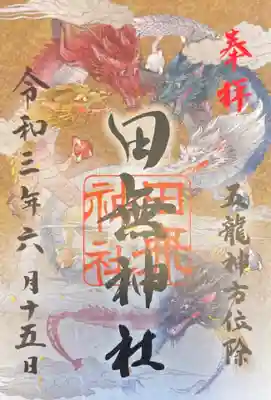 奉拝
五龍神方位除
田無神社
田無神社
令和三年六月十五日